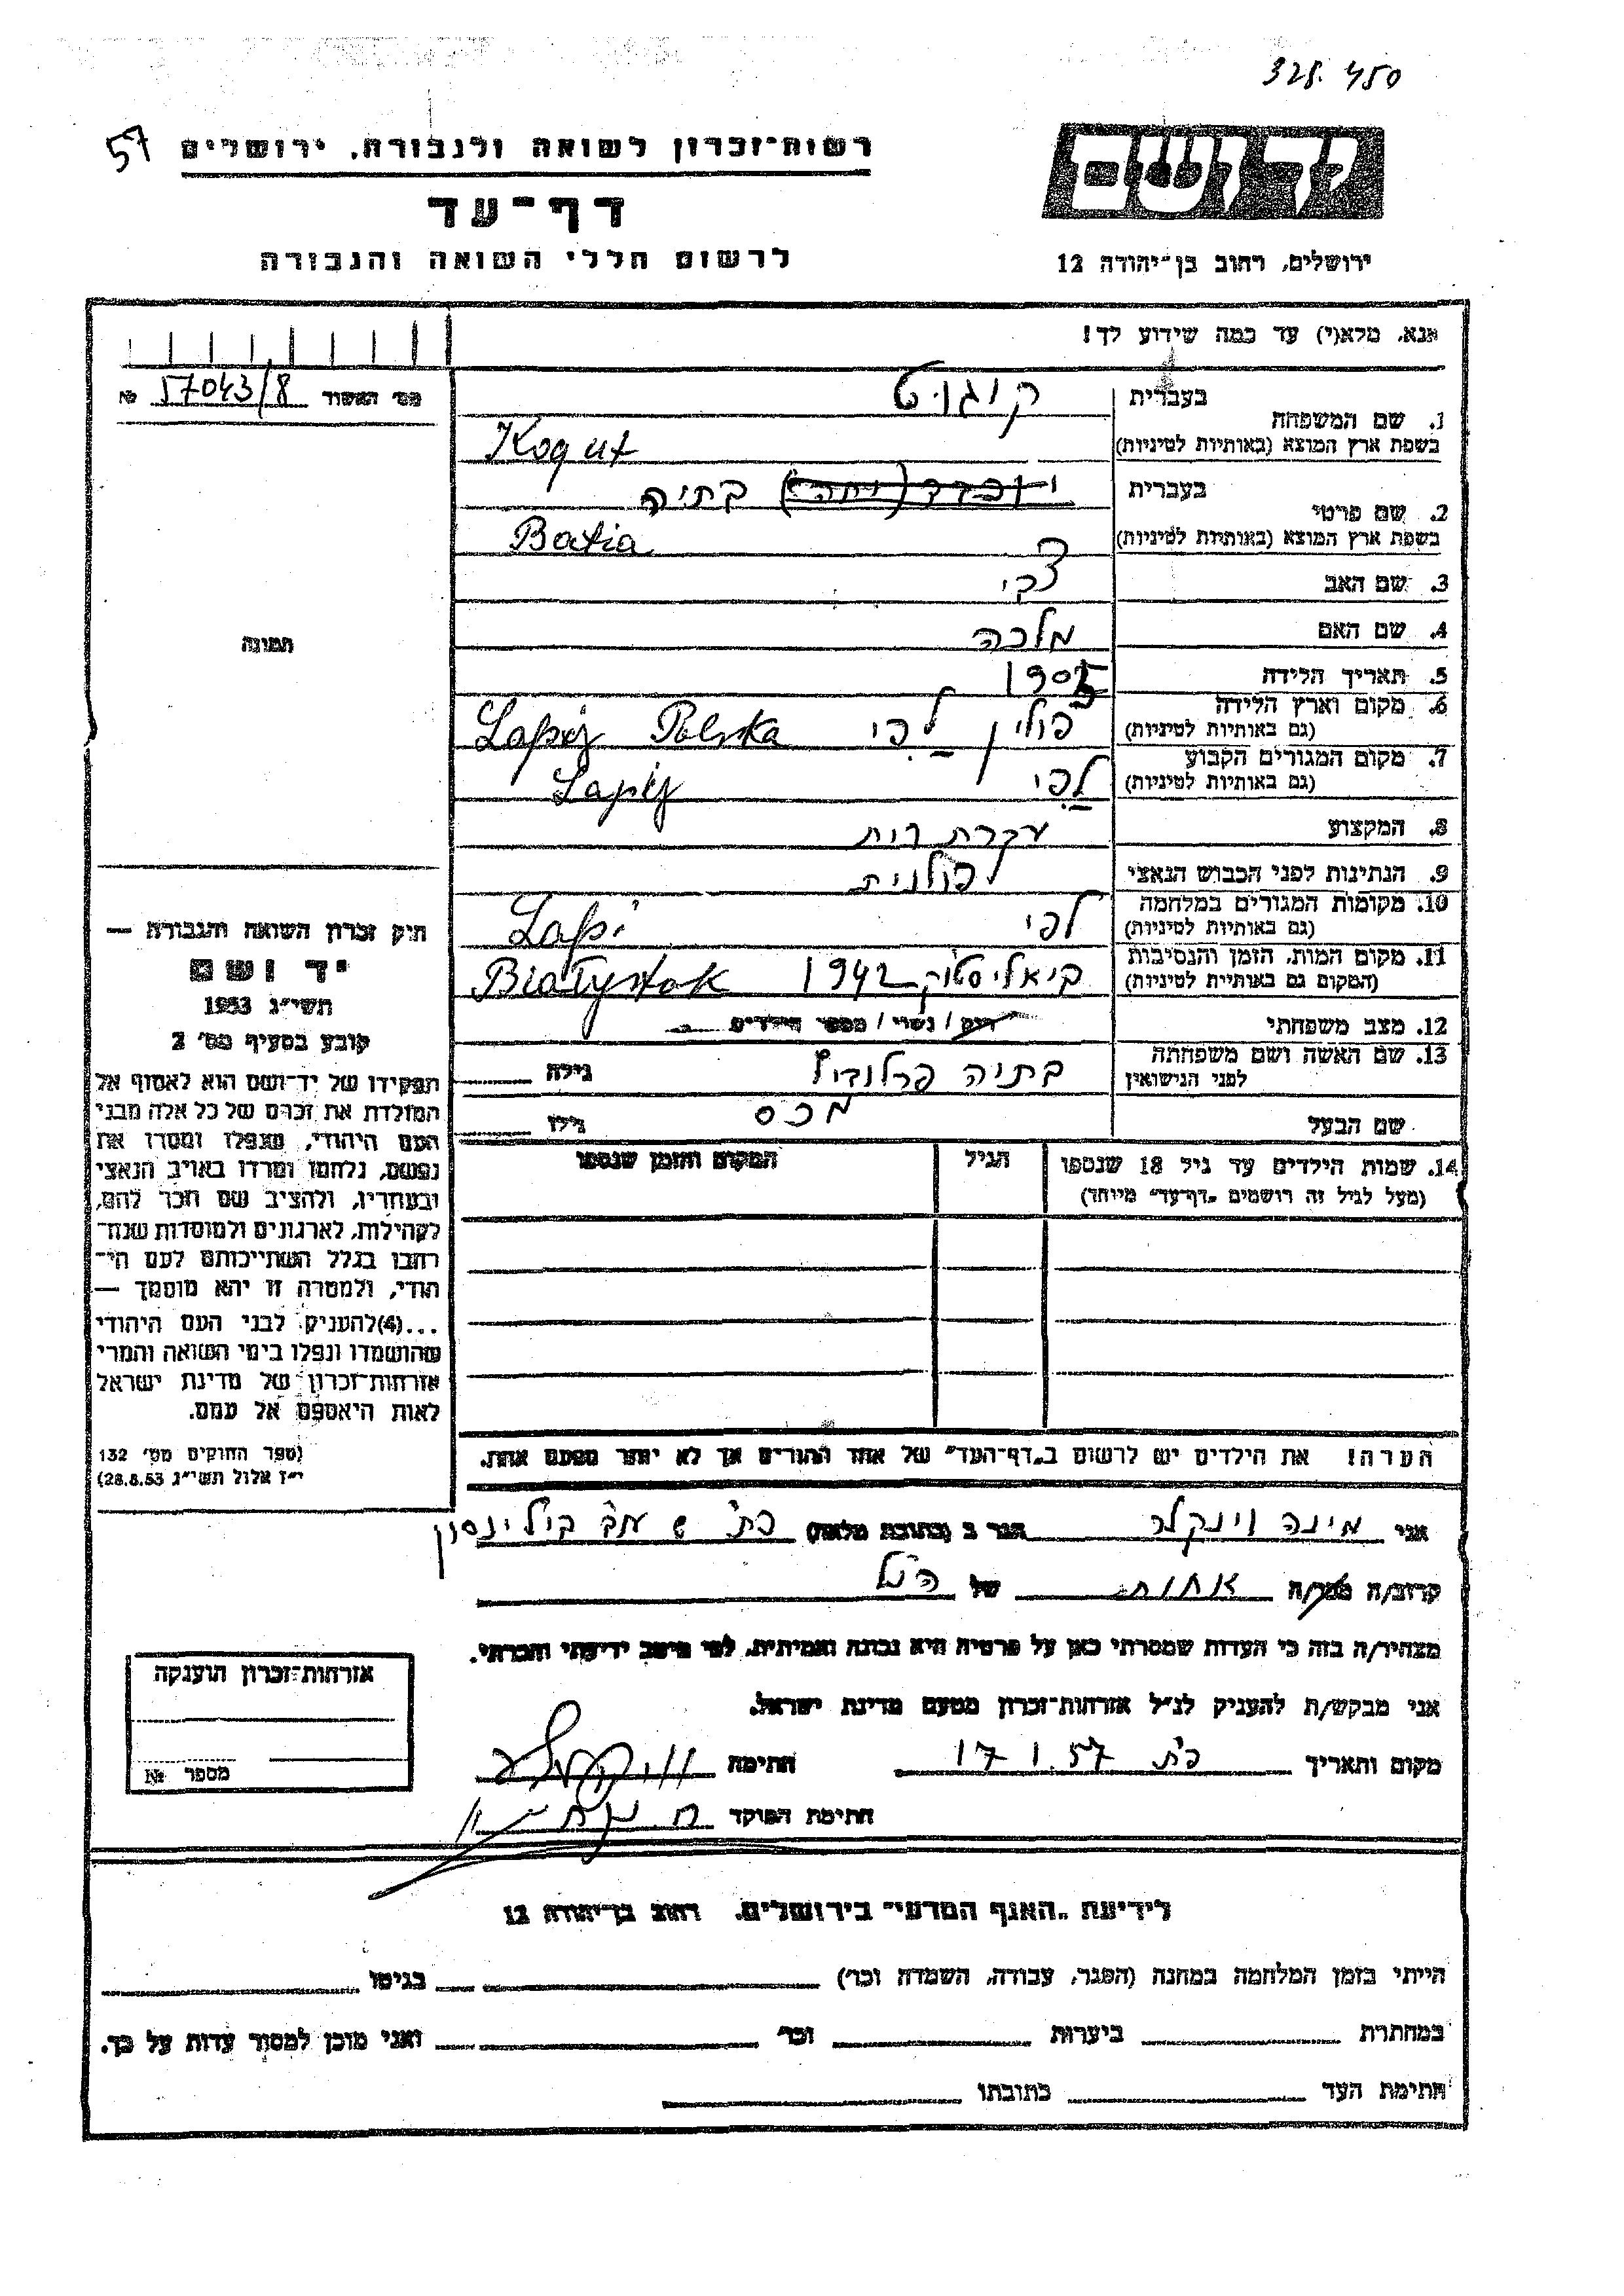 328.450
57
רשות־זכרון לשואה ולגבורה, ירושלים
דף־עד
לרשום חללי השואה והגבורה
יד ושם
ירושלים, רחוב בן־יהודה 12
אנא, מלא(י) עד כמה שידוע לך!
מס' האשור 57043/8 №
1. שם המשפחה
בעברית קוגוט
בשפת ארץ המוצא (באותיות לטיניות) Kogut
2. שם פרטי
בעברית בתיה
בשפת ארץ המוצא (באותיות לטיניות) Batia
3. שם האב צבי
4. שם האם מלכה
5. תאריך הלידה 1905
6. מקום וארץ הלידה (גם באותיות לטיניות) פולין לפי Polska
7. מקום המגורים הקבוע (גם באותיות לטיניות) לפי
8. המקצוע עקרת בית
9. הנתינות לפני הכבוש הנאצי פולנית
10. מקומות המגורים במלחמה (גם באותיות לטיניות) לפי Lapi
11. מקום המות, הזמן והנסיבות (המקום גם באותיות לטיניות) ביאליסטוק 1942 Białystok
12. מצב משפחתי רווק / נשוי / מספר הילדים
13. שם האשה ושם משפחתה לפני הנישואין בתיה גילה
שם הבעל מכס גילו
14. שמות הילדים עד גיל 18 שנספו
(מעל לגיל זה רושמים „דף־עד" מיוחד)
הגיל
המקום והזמן שנספו
הערה! את הילדים יש לרשום ב„דף־העד" של אחד ההורים אך לא יותר מפעם אחת.
תמונה
חוק זכרון השואה והגבורה —
יד ושם
תשי״ג 1953
קובע בסעיף מס' 2
תפקידו של יד־ושם הוא לאסוף אל
המולדת את זכרם של כל אלה מבני
העם היהודי, שנפלו ומסרו את
נפשם, נלחמו ומרדו באויב הנאצי
ובעוזריו, ולהציב שם וזכר להם,
לקהילות, לארגונים ולמוסדות שנח־
רבו בגלל השתייכותם לעם הי־
הודי, ולמטרה זו יהא מוסמך —
...(4)להעניק לבני העם היהודי
שהושמדו ונפלו בימי השואה והמרי
אזרחות־זכרון של מדינת ישראל
לאות היאספם אל עמם.
(ספר החוקים מס' 132
י״ז אלול תשי״ג 28.8.53)
אני מינה וינקלר הגר ב (כתובת מלאה) בילינסון
קרוב/ה מכר/ה אחות של הנ״ל
מצהיר/ה בזה כי העדות שמסרתי כאן על פרטיה היא נכונה ואמיתית, לפי מיטב ידיעתי והכרתי.
אני מבקש/ת להעניק לנ״ל אזרחות־זכרון מטעם מדינת ישראל.
מקום ותאריך פ״ת 17 1.57 חתימה
חתימת הפוקד
אזרחות־זכרון הוענקה
מספר №
לידיעת „האגף המדעי" בירושלים, רחוב בן־יהודה 12
הייתי בזמן המלחמה במחנה (הסגר, עבודה, השמדה וכו') בגיטו
במחתרת ביערות וכו' ואני מוכן למסור עדות על כך.
חתימת העד כתובתו